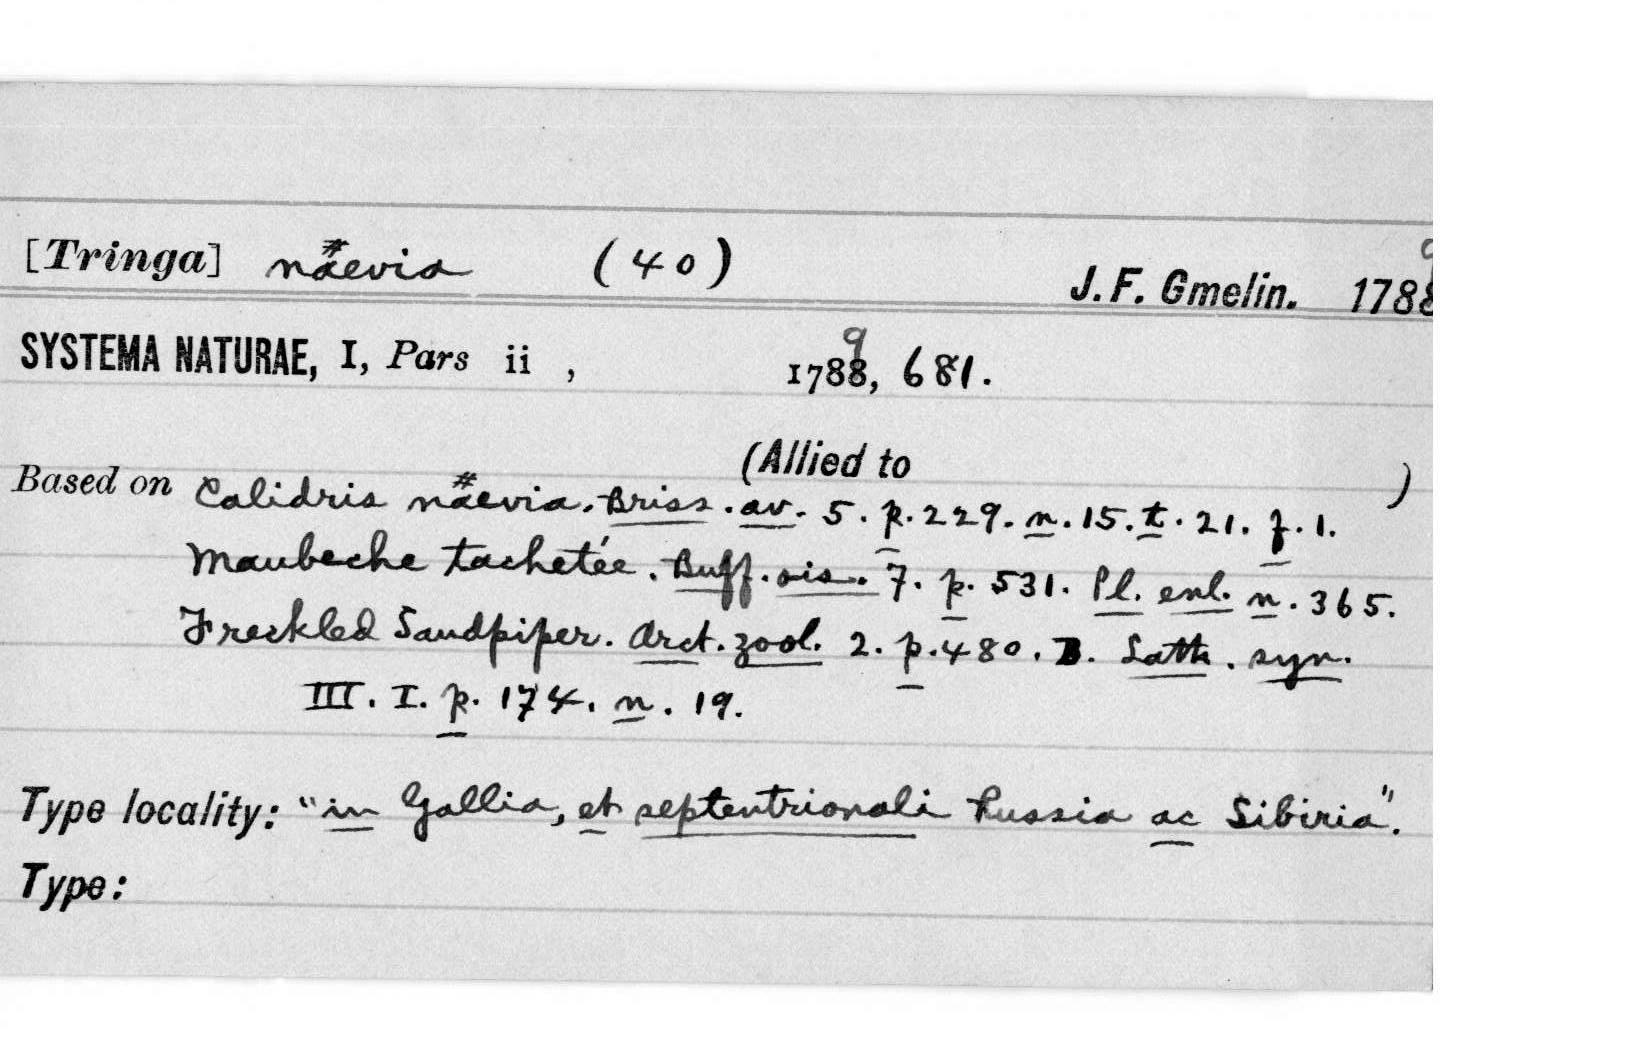 [Tringa] naevia (40)
J. F. Gmelin. 1789
SYSTEMA NATURAE, I, Pars ii , 1789, 681.
(Allied to )
Based on Calidris naevia. Briss. av. 5. p. 229. n. 15. t. 21. f. 1.
Maubeche tachetée. Buff. ois. 7. p. 531. Pl. enl. n. 365.
Freckled Sandpiper. Arct. zool. 2. p. 480. B. Lath. syn.
III. I. p. 174. n. 19.
Type locality: "in Gallia, et septentrionali Russia ac Sibiria".
Type: